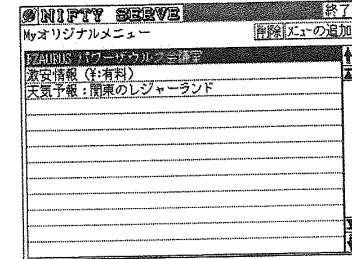 @NIFTY SERVE 終了
Myオリジナルメニュー 削除 メニューの追加
FZAURUS パワーザウルス会議室
激安情報 (¥:有料)
天気予報:関東のレジャーランド